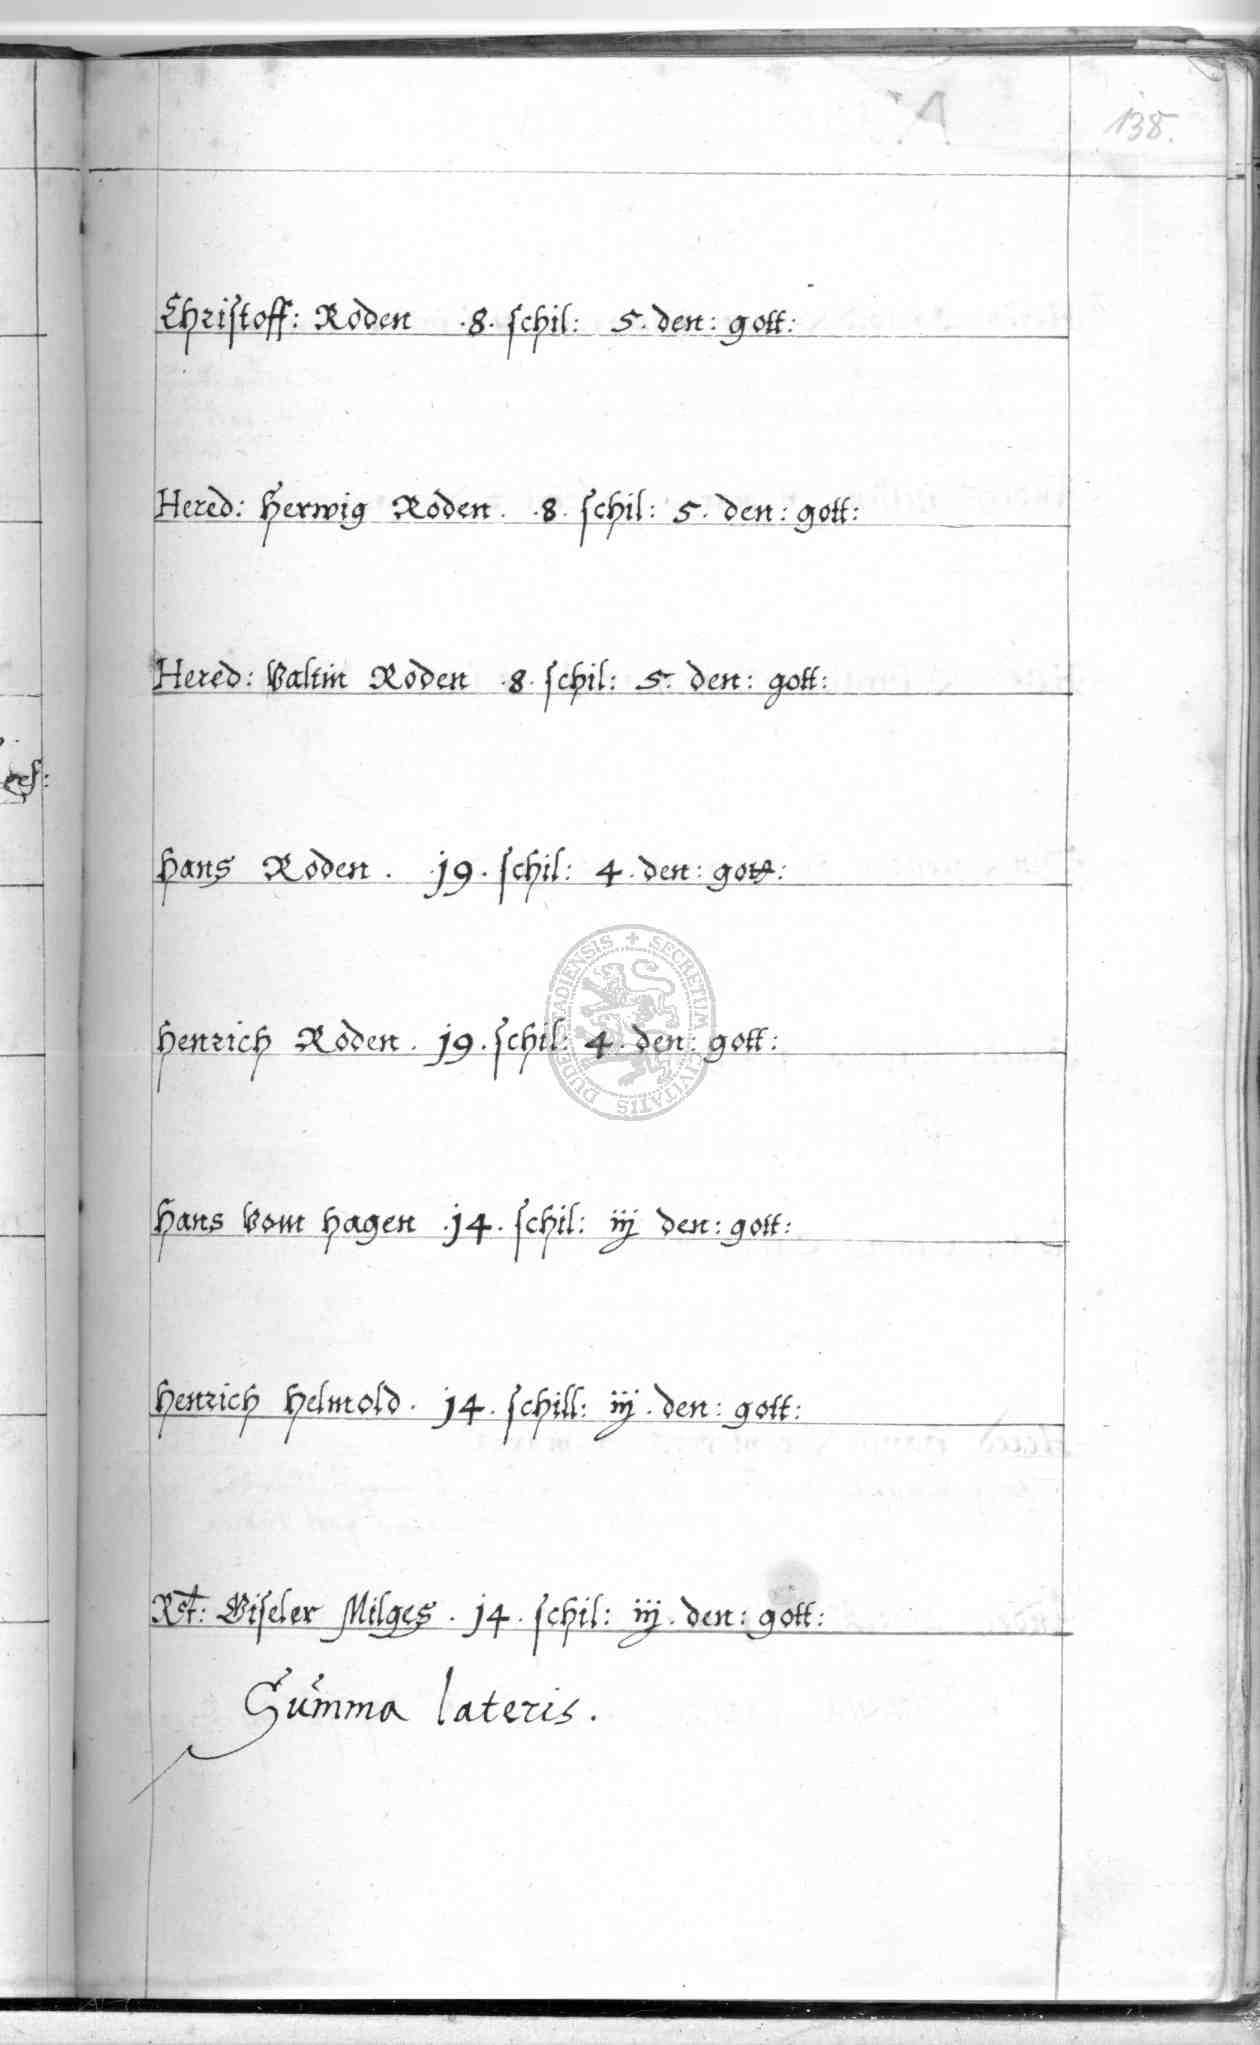 138.
Christoff: Roden .8. schil: 5. den: gott:
Hered: Herwig Roden. .8. schil: 5. den: gott:
Hered: Valtin Roden .8. schil: 5. den: gott:
Hans Roden. .19. schil: 4. den: gott:
Henrich Roden. 19. schil: 4. den: gott:
Hans Vom Hagen .14. schil: iij den: gott:
Henrich Helmold. 14. schill: iij. den: gott:
Giseler Milges. 14. schil: iij. den: gott:
Summa lateris.
SECRETUM CIVITATIS DUDERSTADIENSIS